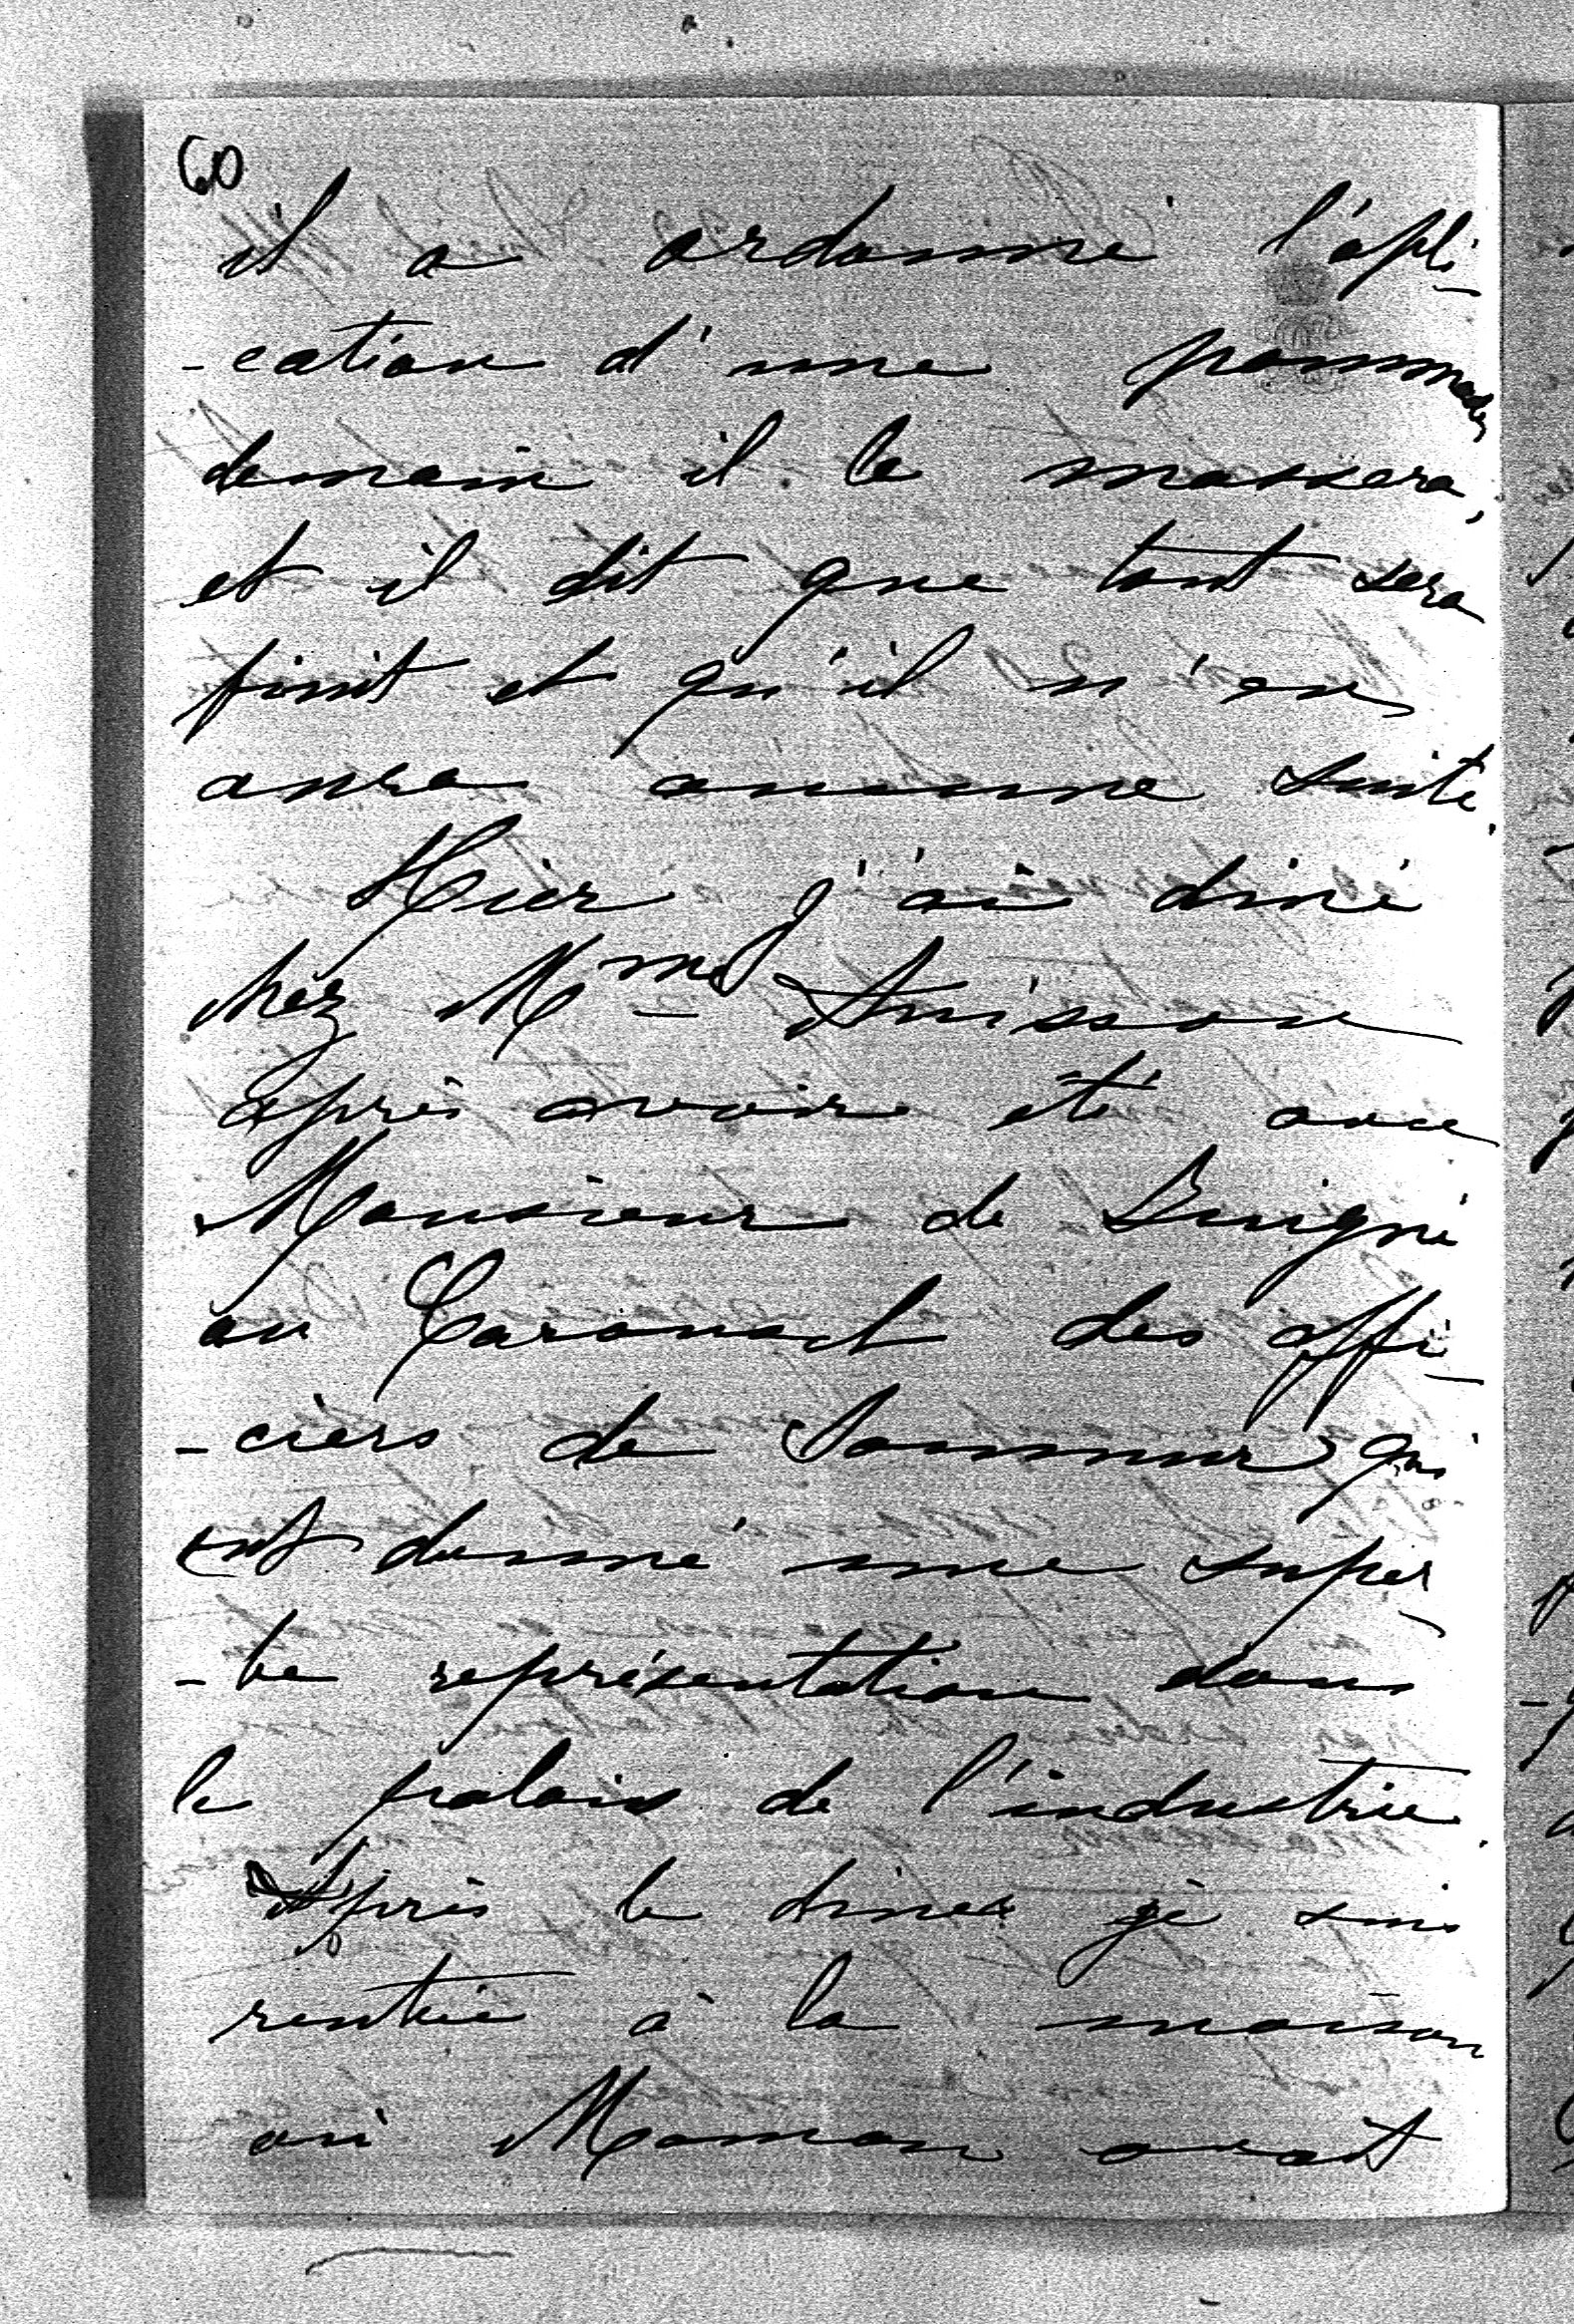 60
il a ordonné l'apli-
-cation d'une pommade,
demain il le massera,
et il dit que tout sera
finit et qu'il n'en
aura aucune suite.
Hier j'ai diné
chez Mme Anisson
après avoir été avec
Monsieur de
au Carousel des offi-
-ciers de Saumur qui
ont donné une super-
-be représentation dans
le palais de l'industrie.
Après le diner je suis
rentrée à la maison
où Maman avait